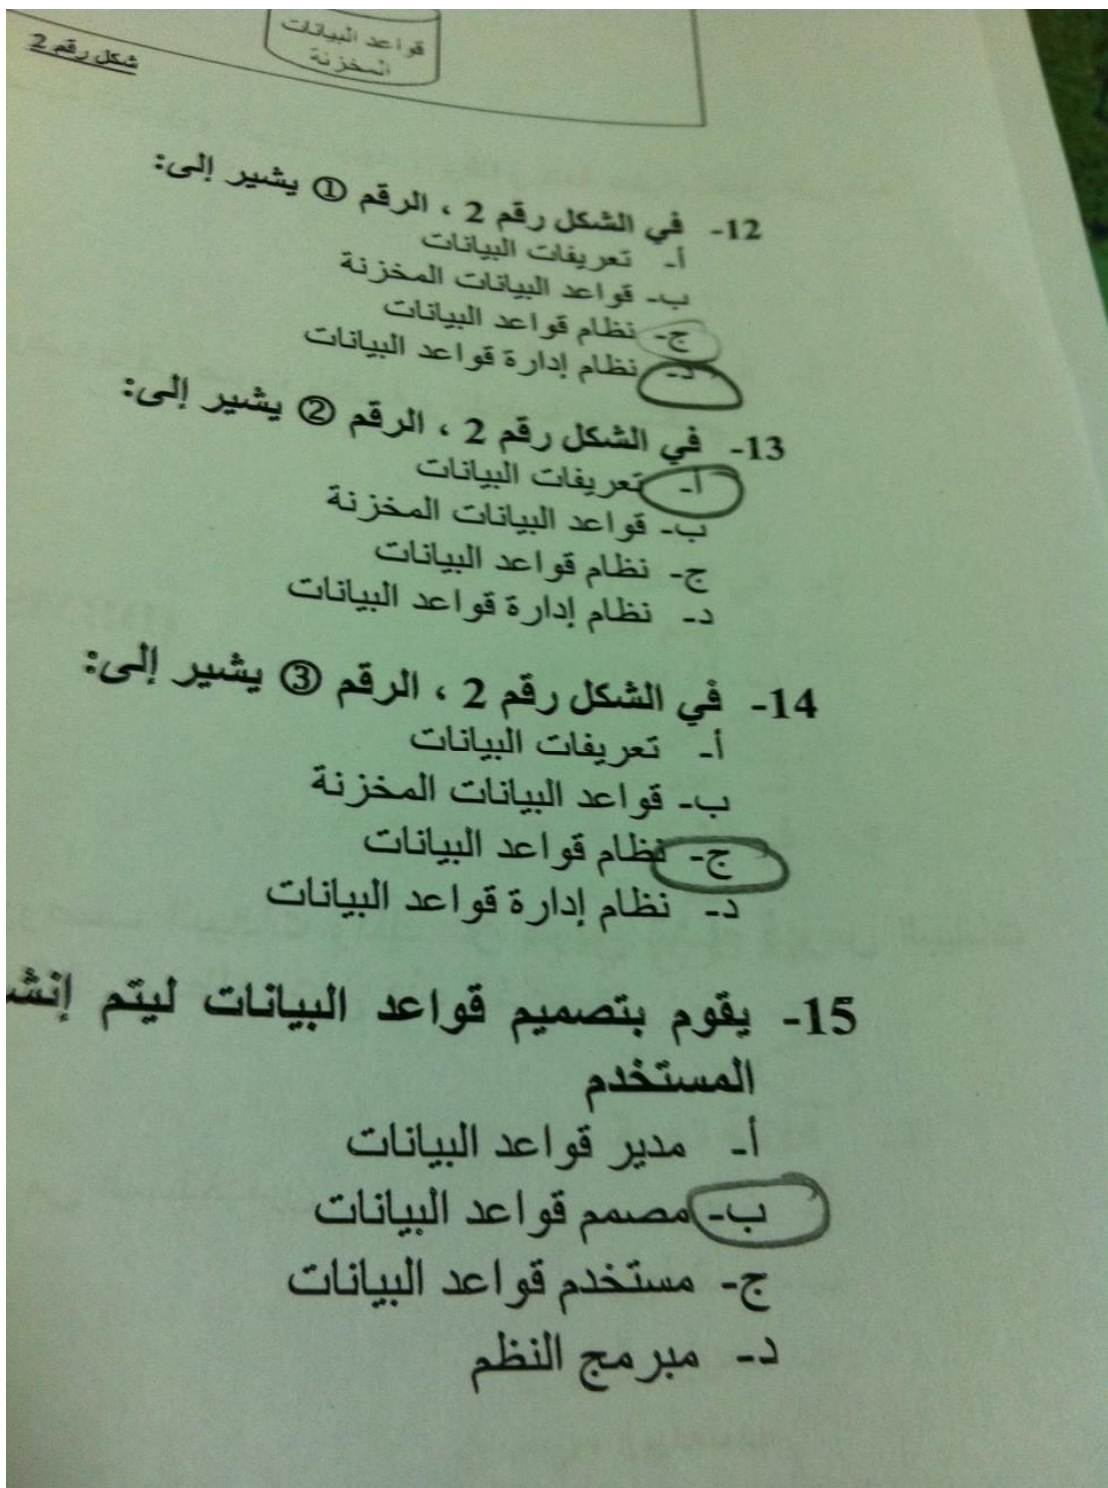 قواعد البيانات
المخزنة
شكل رقم 2
12- في الشكل رقم 2 ، الرقم ① يشير إلى:
أ- تعريفات البيانات
ب- قواعد البيانات المخزنة
ج- نظام قواعد البيانات
د- نظام إدارة قواعد البيانات
13- في الشكل رقم 2 ، الرقم ② يشير إلى:
أ- تعريفات البيانات
ب- قواعد البيانات المخزنة
ج- نظام قواعد البيانات
د- نظام إدارة قواعد البيانات
14- في الشكل رقم 2 ، الرقم ③ يشير إلى:
أ- تعريفات البيانات
ب- قواعد البيانات المخزنة
ج- نظام قواعد البيانات
د- نظام إدارة قواعد البيانات
15- يقوم بتصميم قواعد البيانات ليتم
المستخدم
أ- مدير قواعد البيانات
ب- مصمم قواعد البيانات
ج- مستخدم قواعد البيانات
د- مبرمج النظم